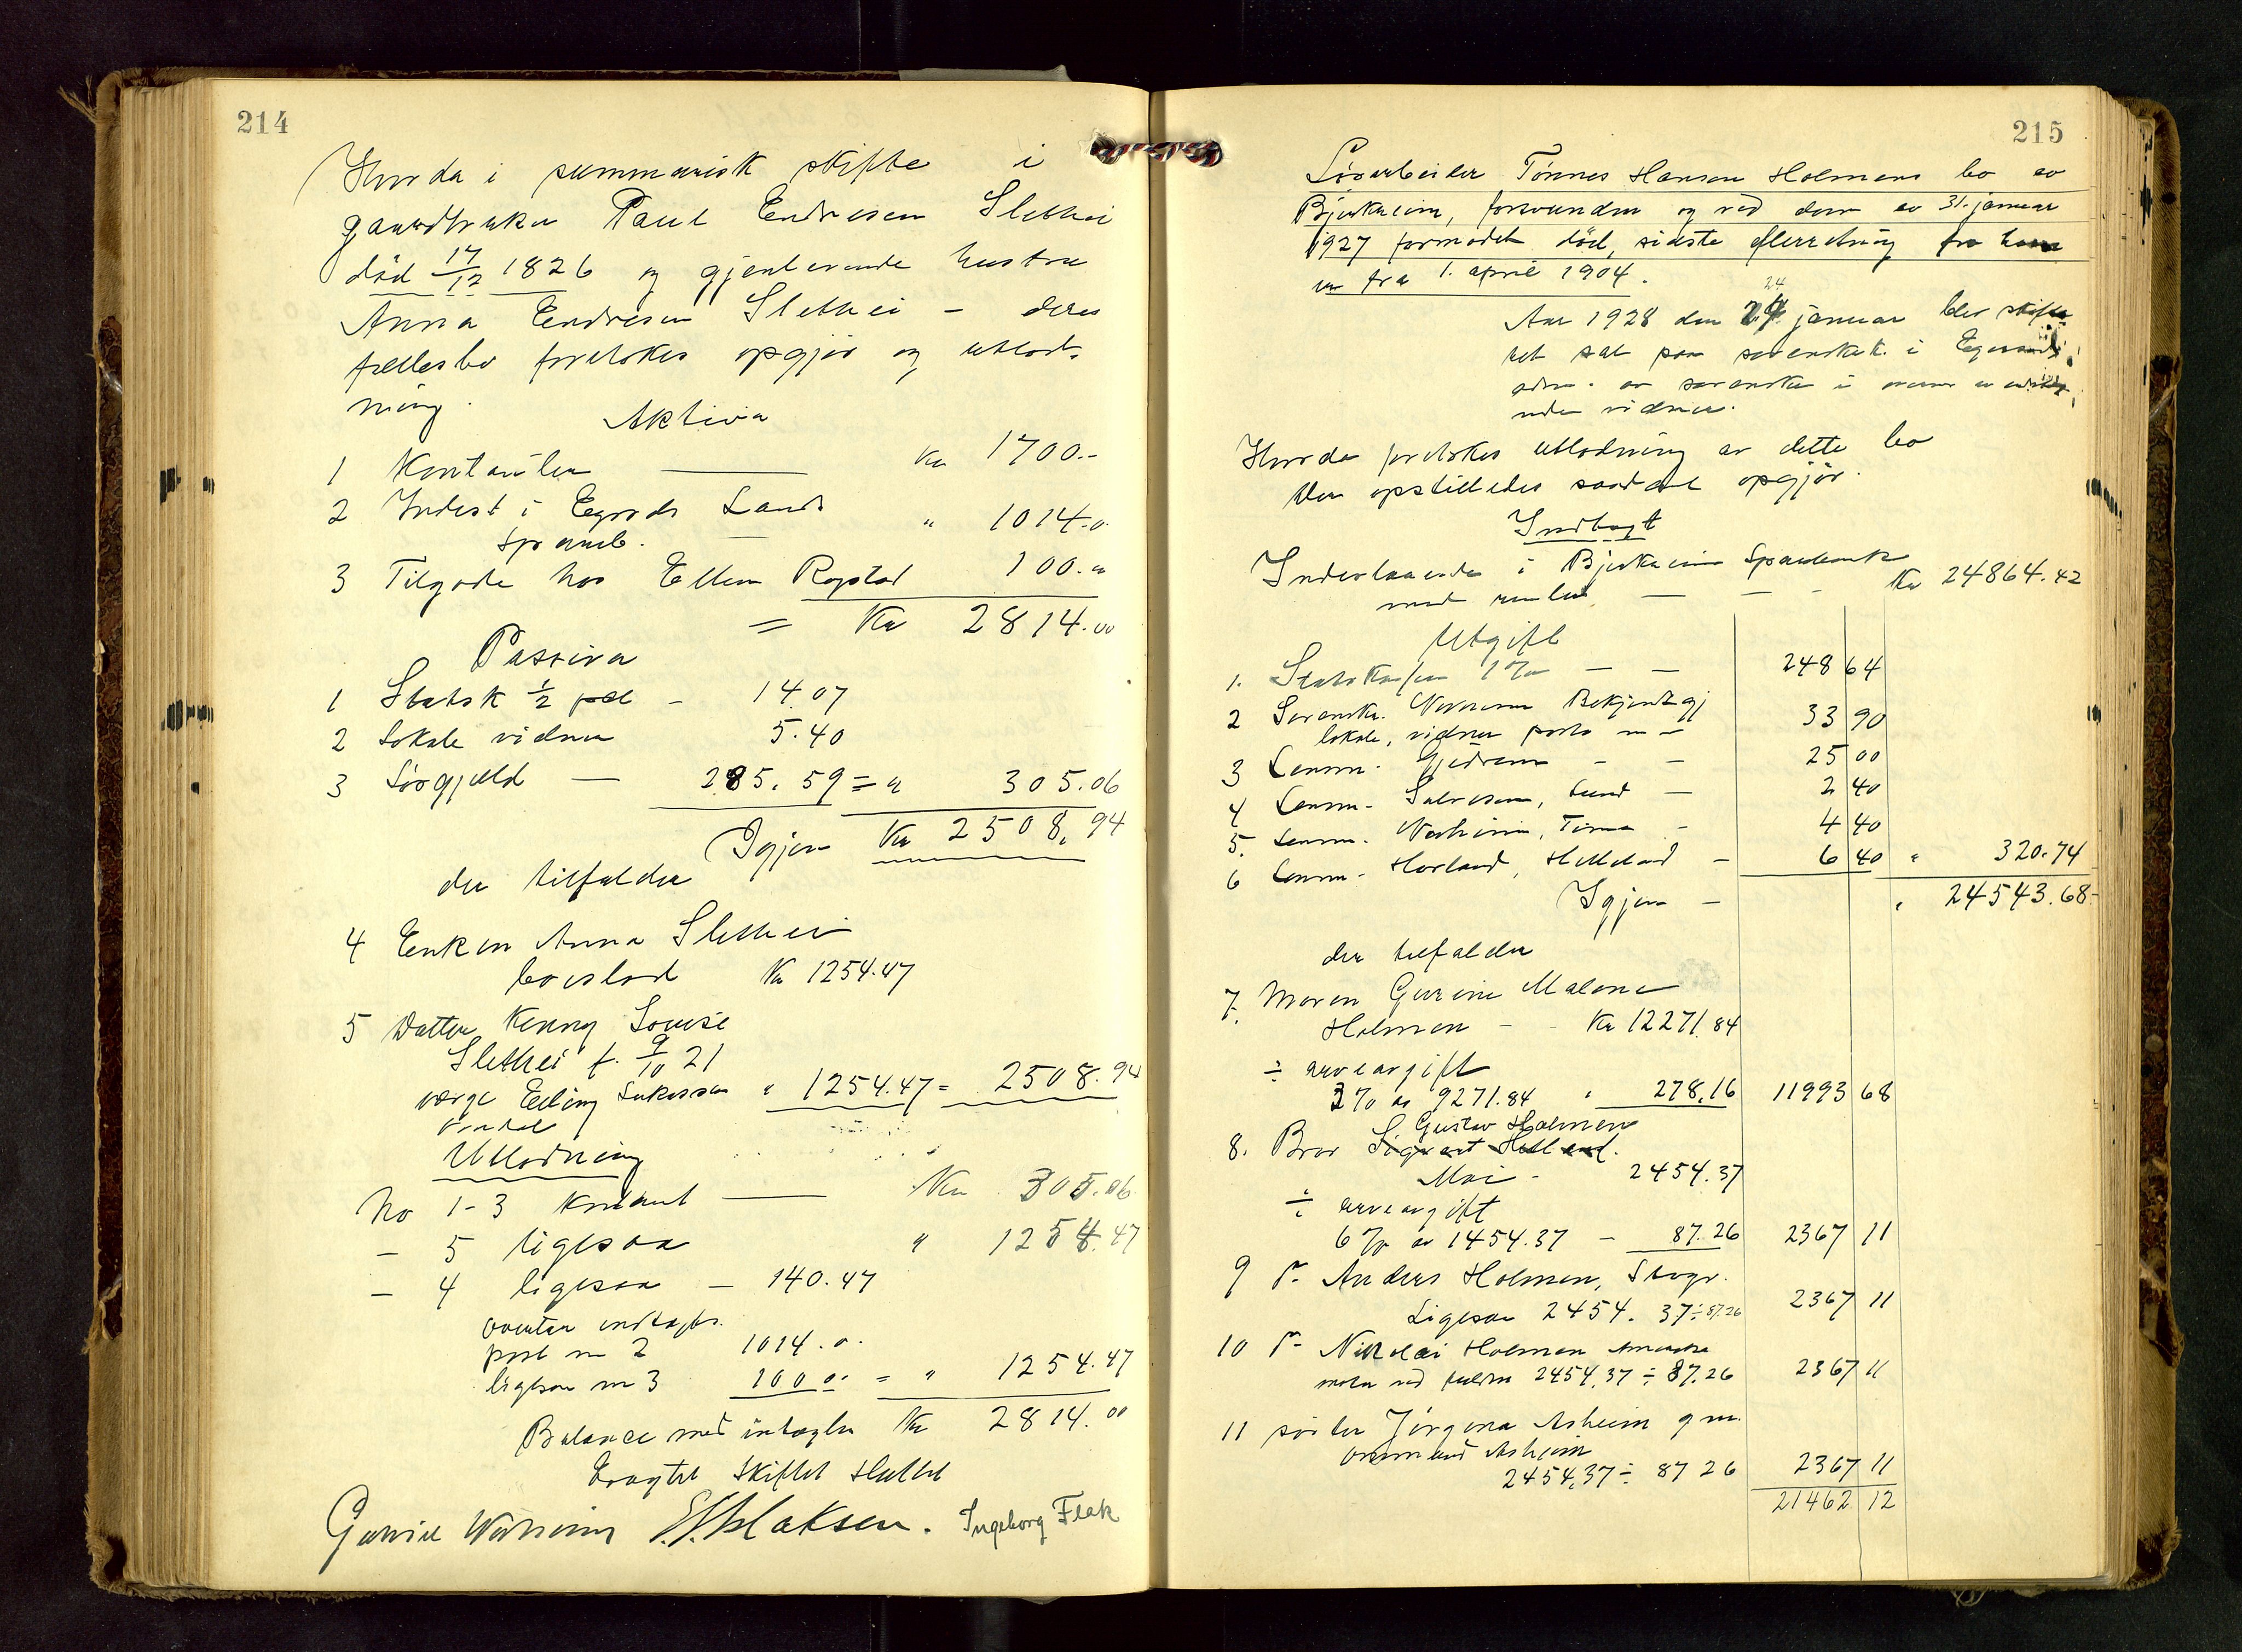 214
Hvorda i summarisk skifte i
gaardbruker Paul Endresen Slethei
död 17/12 1826 og gjenlevende hustru
Anna Endresen Slethei - deres
fællesbo foretokes opgjör og utlod-
ning.
Aktiva
1 Kontanter — Kr 1700.-
2 Indest i Egersds Lands " 1014.0
Spareb. —
3 Tilgode hos Ellen Rogstad 100.00
= Kr 2814.00
Passiva
1 Statsk ½ pct - 14.07
2 Lokale vidner 5.40
3 Løsgjæld — 285.59 = " 305.06
Igjen Kr 2508.94
der tilfalder
4 Enken Anna Slethei
boeslod Kr 1254.47
5 Datter Kenny Louise
Slethei f. 9/10 21
verge Elling 1254.47 = 2508.94
Utlodning
No 1-3 kontant — Kr 305.06
- 5 ligesaa " 1254.47
- 4 ligesaa — 140.47
indtægts.
post nr 2 1014.0
ligesaa nr 3 100 00 = " 1254.47
Balance med indtægten Kr 2814.00
Skiftet sluttet
Ingeborg Flek
215
Løsarbeider Tønnes Hansen Holmens bo av
Bjerkreim, forsvunden og ved dom av 31. januar
1927 formodet død, sidste efterretning fra ham
er fra 1. april 1904.
24
Aar 1928 den 24 januar blev skifte
ret sat paa sorenskr.k. i Egersund
adm. av sorenskr. i nærvær av
vidner.
Hvorda foretokes utlodning av dette bo
Der opstilledes saadant opgjör.
Indtægt
Indestaaende i Bjerkreim Sparebank
med renter — — - Kr 24864.42
Utgift
1. Statskassen 1% — — 248 64
2 Sorenskr. Bekjentgj
lokale, vidner porto 33 90
3 Lensm. Gjedrem - - 25 00
4 Lensm. Salvesen, Lund — 2 40
5. Lensm. - 4 40
6 Lensm. Hovland, Helleland - 6 40 " 320.74
Igjen — " 24543.68
der tilfalder
7. Moren Gurine Malene
Holmen - - Kr 12271.84
÷ arveavgift
3% av 9271.84 " 278.16 11993 68
Gustav Holmen
8. Bror Sigvart Helland.
Moi - 2454.37
÷ arveavgift
6% av 1454.37 — 87.26 2367 11
9 do Anders Holmen,
Ligesaa 2454.37 ÷ 87.26 2367 11
10 do Nikolai Holmen Amerika
2454.37 ÷ 87.26 2367 11
11 søster Jörgina Asheim gm.
Ommund Asheim
2454.37 ÷ 87 26 2367 11
21462 12